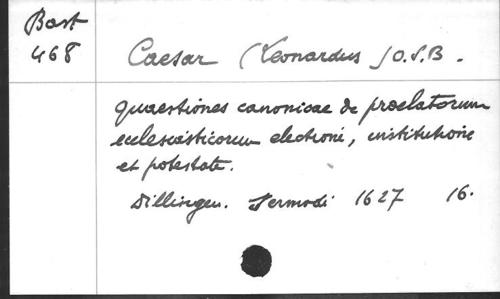 Bast
468
Caesar (Leonardus) O.S.B.
quaestiones canonicae de praelatorum
ecclesiasticorum electione, institutione
et potestate.
Dillingen. Sermodi 1627 16.